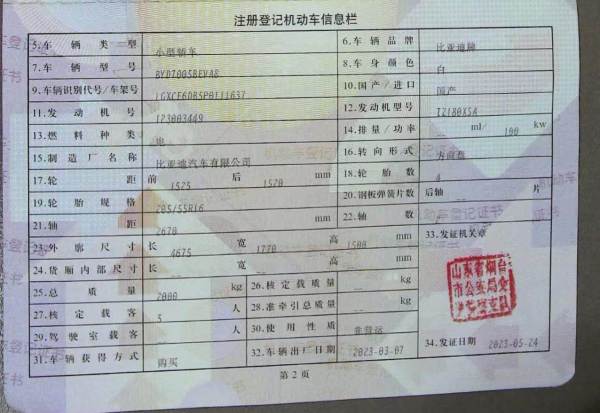 注册登记机动车信息栏
5.车辆类型 小型轿车 6.车辆品牌 比亚迪牌
7.车辆型号 BYD7005BEVA8 8.车身颜色 白
9.车辆识别代号/车架号 10.国产/进口 国产
11.发动机号 123003449 12.发动机型号 TZ180XSA
13.燃料种类 电 14.排量/功率 -- ml/ 100 kw
15.制造厂名称 比亚迪汽车有限公司 16.转向形式 方向盘
17.轮距 前 1525 后 1520 mm 18.轮胎数 4
19.轮胎规格 205/55R16 20.钢板弹簧片数 后轴 -- 片
21.轴距 2670 mm 22.轴数
23.外廓尺寸 长 4675 宽 1770 高 1500 mm 33.发证机关章
24.货厢内部尺寸 长 -- 宽 -- 高 -- mm
25.总质量 2000 kg 26.核定载质量 -- kg
27.核定载客 5 人 28.准牵引总质量 -- kg
29.驾驶室载客 -- 人 30.使用性质 非营运
31.车辆获得方式 购买 32.车辆出厂日期 2023-03-07 34.发证日期 2023-05-24
第2页